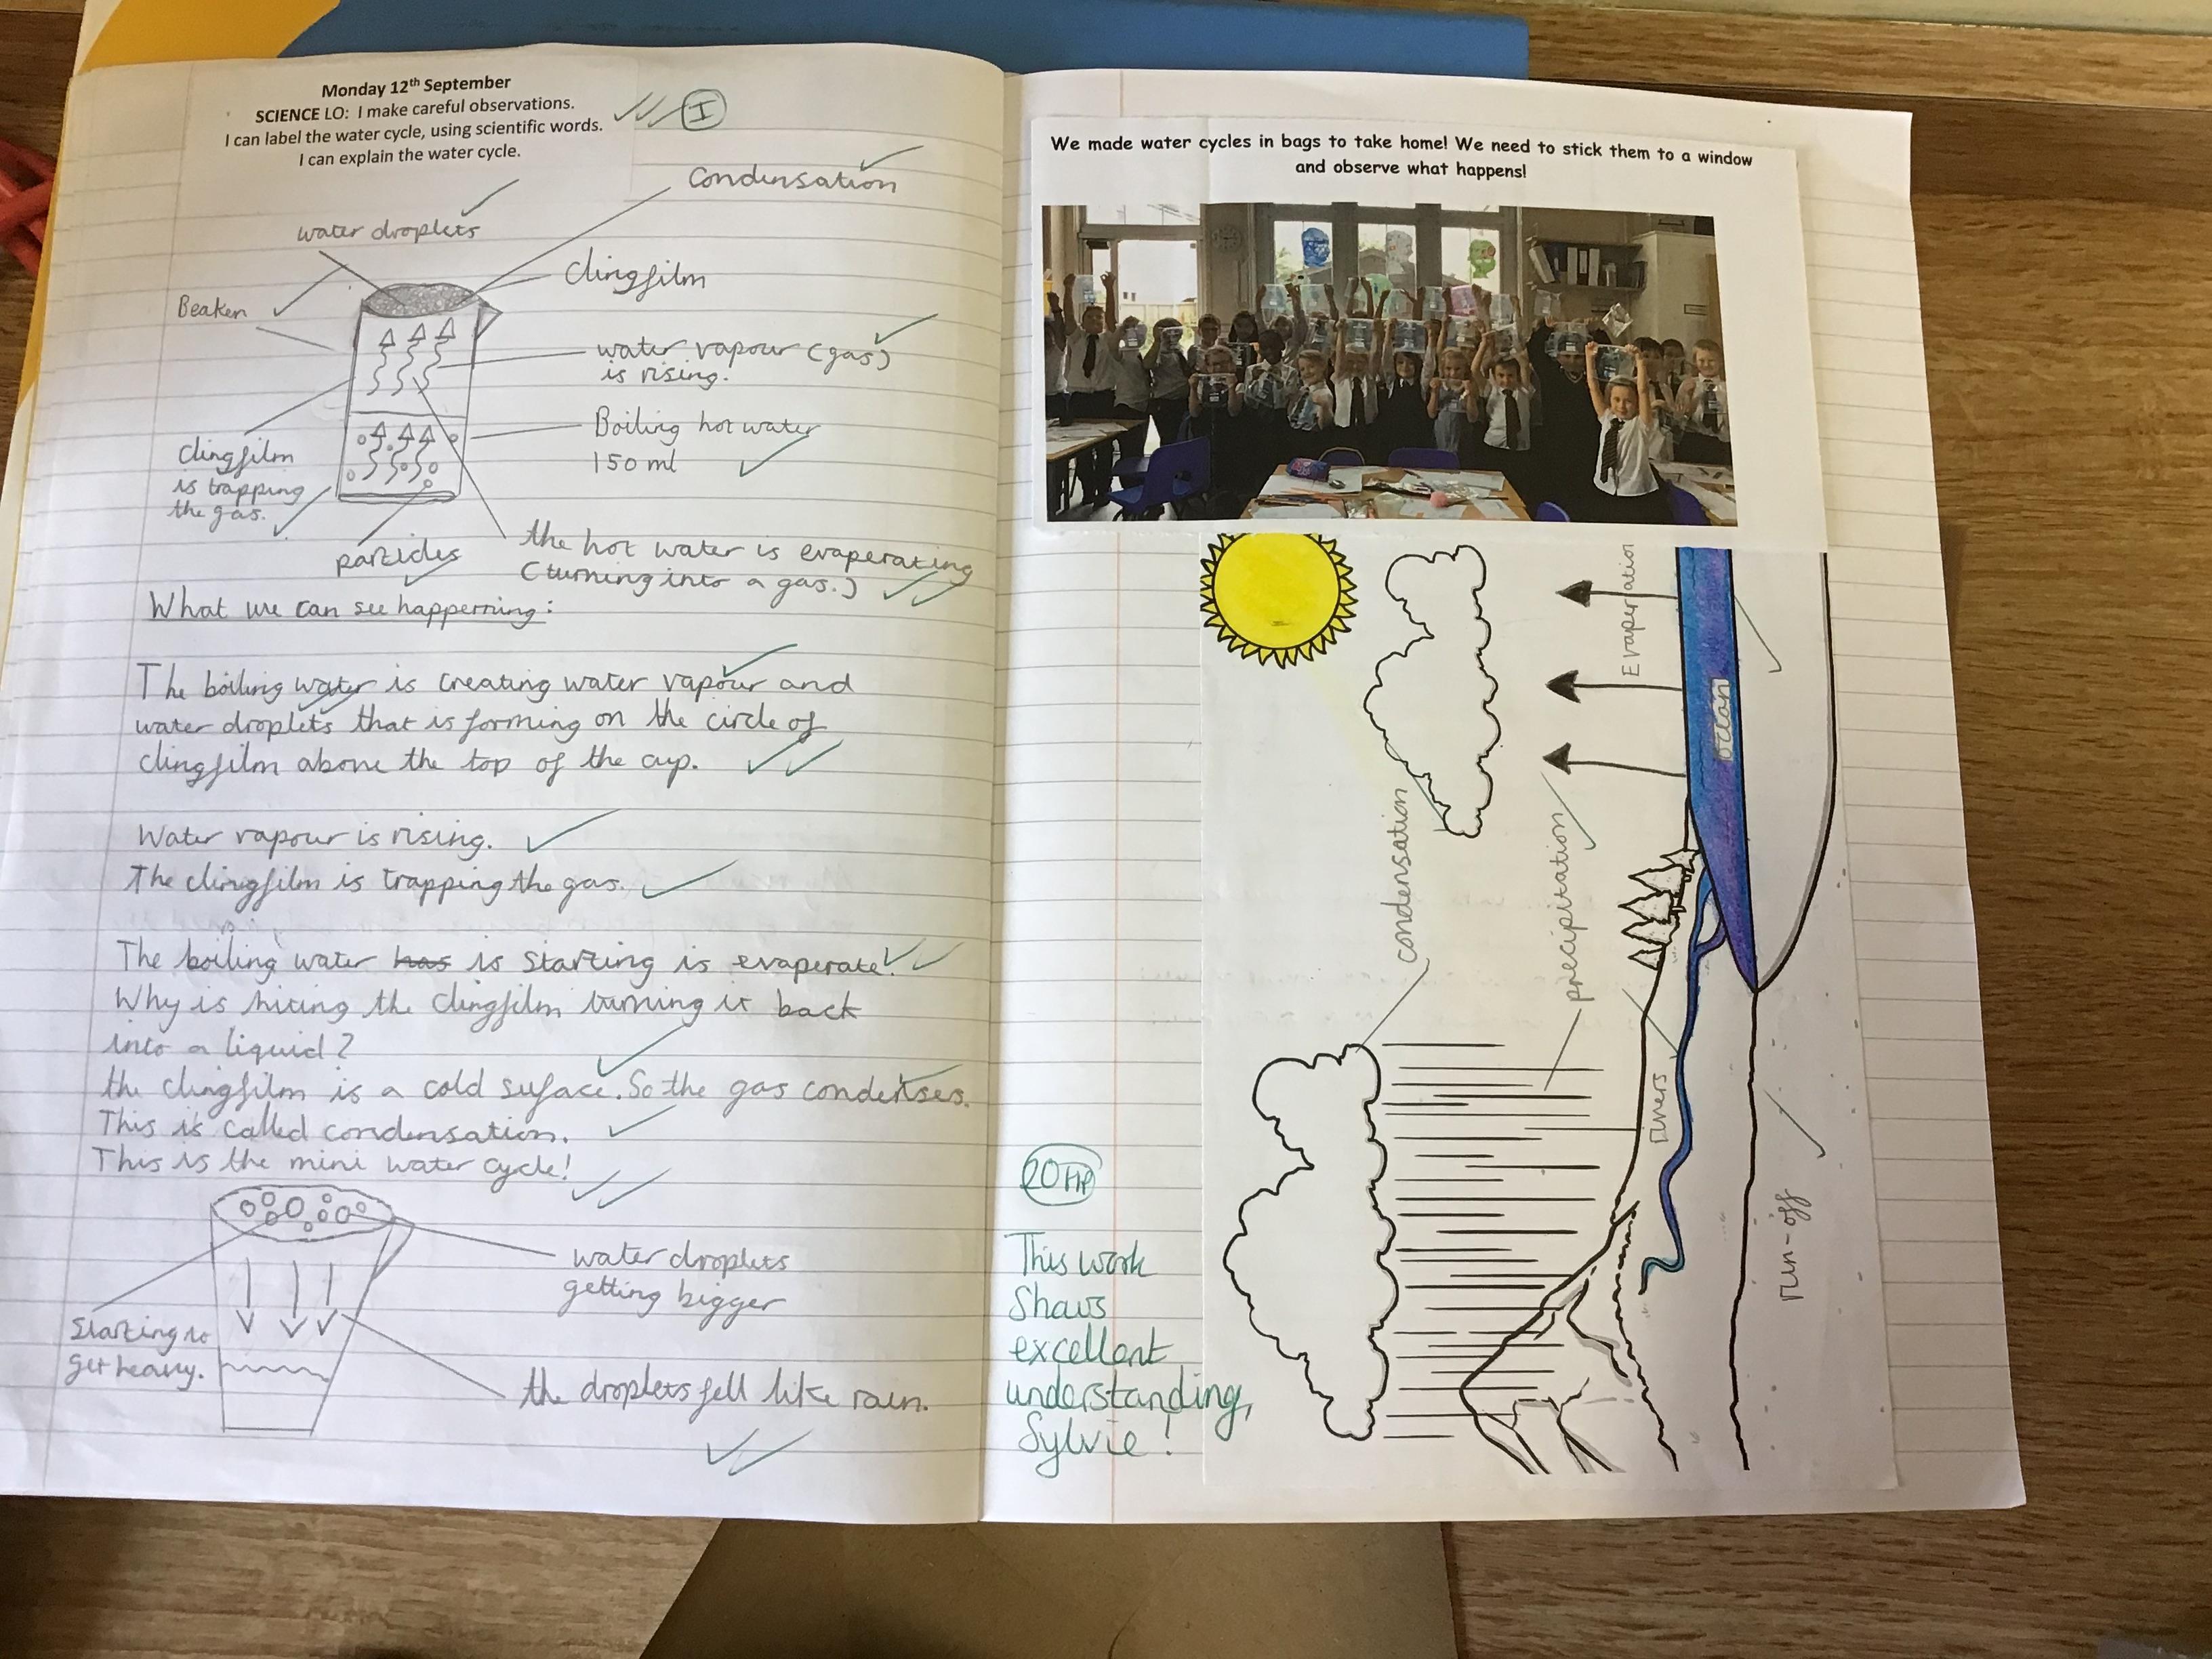 Monday 12th September
SCIENCE LO: I make careful observations.
I can label the water cycle, using scientific words.
I can explain the water cycle.
I
Condensation
water droplets
Clingfilm
Beaker
water vapour (gas)
is rising.
Boiling hot water
150 ml
Clingfilm
is trapping
the gas.
particles
the hot water is evaperating
(turning into a gas.)
What we can see happerning:
The boiling water is creating water vapour and
water droplets that is forming on the circle of
clingfilm above the top of the cup.
Water vapour is rising.
The clingfilm is trapping the gas.
The boiling water has is starting is evaperate.
Why is hiting the clingfilm turning it back
into a liquid?
the clingfilm is a cold suface. So the gas condenses.
This is called condensation.
This is the mini water cycle!
water droplets
getting bigger
Starting to
get heavy.
the droplets fell like rain.
We made water cycles in bags to take home! We need to stick them to a window
and observe what happens!
Evaperation
ocean
condensation
precipitation
rivers
run-off
20 HP
This work
Shows
excellent
understanding,
Sylvie!